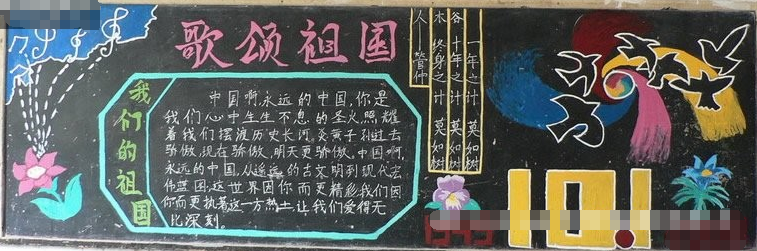 歌颂祖国
我们的祖国
中国啊,永远的中国,你是
我们心中生生不息的圣火,照耀
着我们摆渡历史长河,炎黄子孙过去
骄傲,现在骄傲,明天更骄傲,中国啊,
永远的中国,从遥远的古文明到现代宏
伟蓝图,这世界因你而更精彩我们因
你而更执着这一方热土让我们爱得无
比深刻.
一年之计 莫如树
谷 十年之计 莫如树
木 终身之计 莫如树
人 管仲
10.1